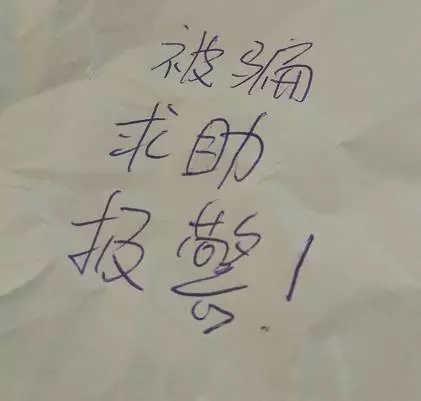 被骗
求助
报警!